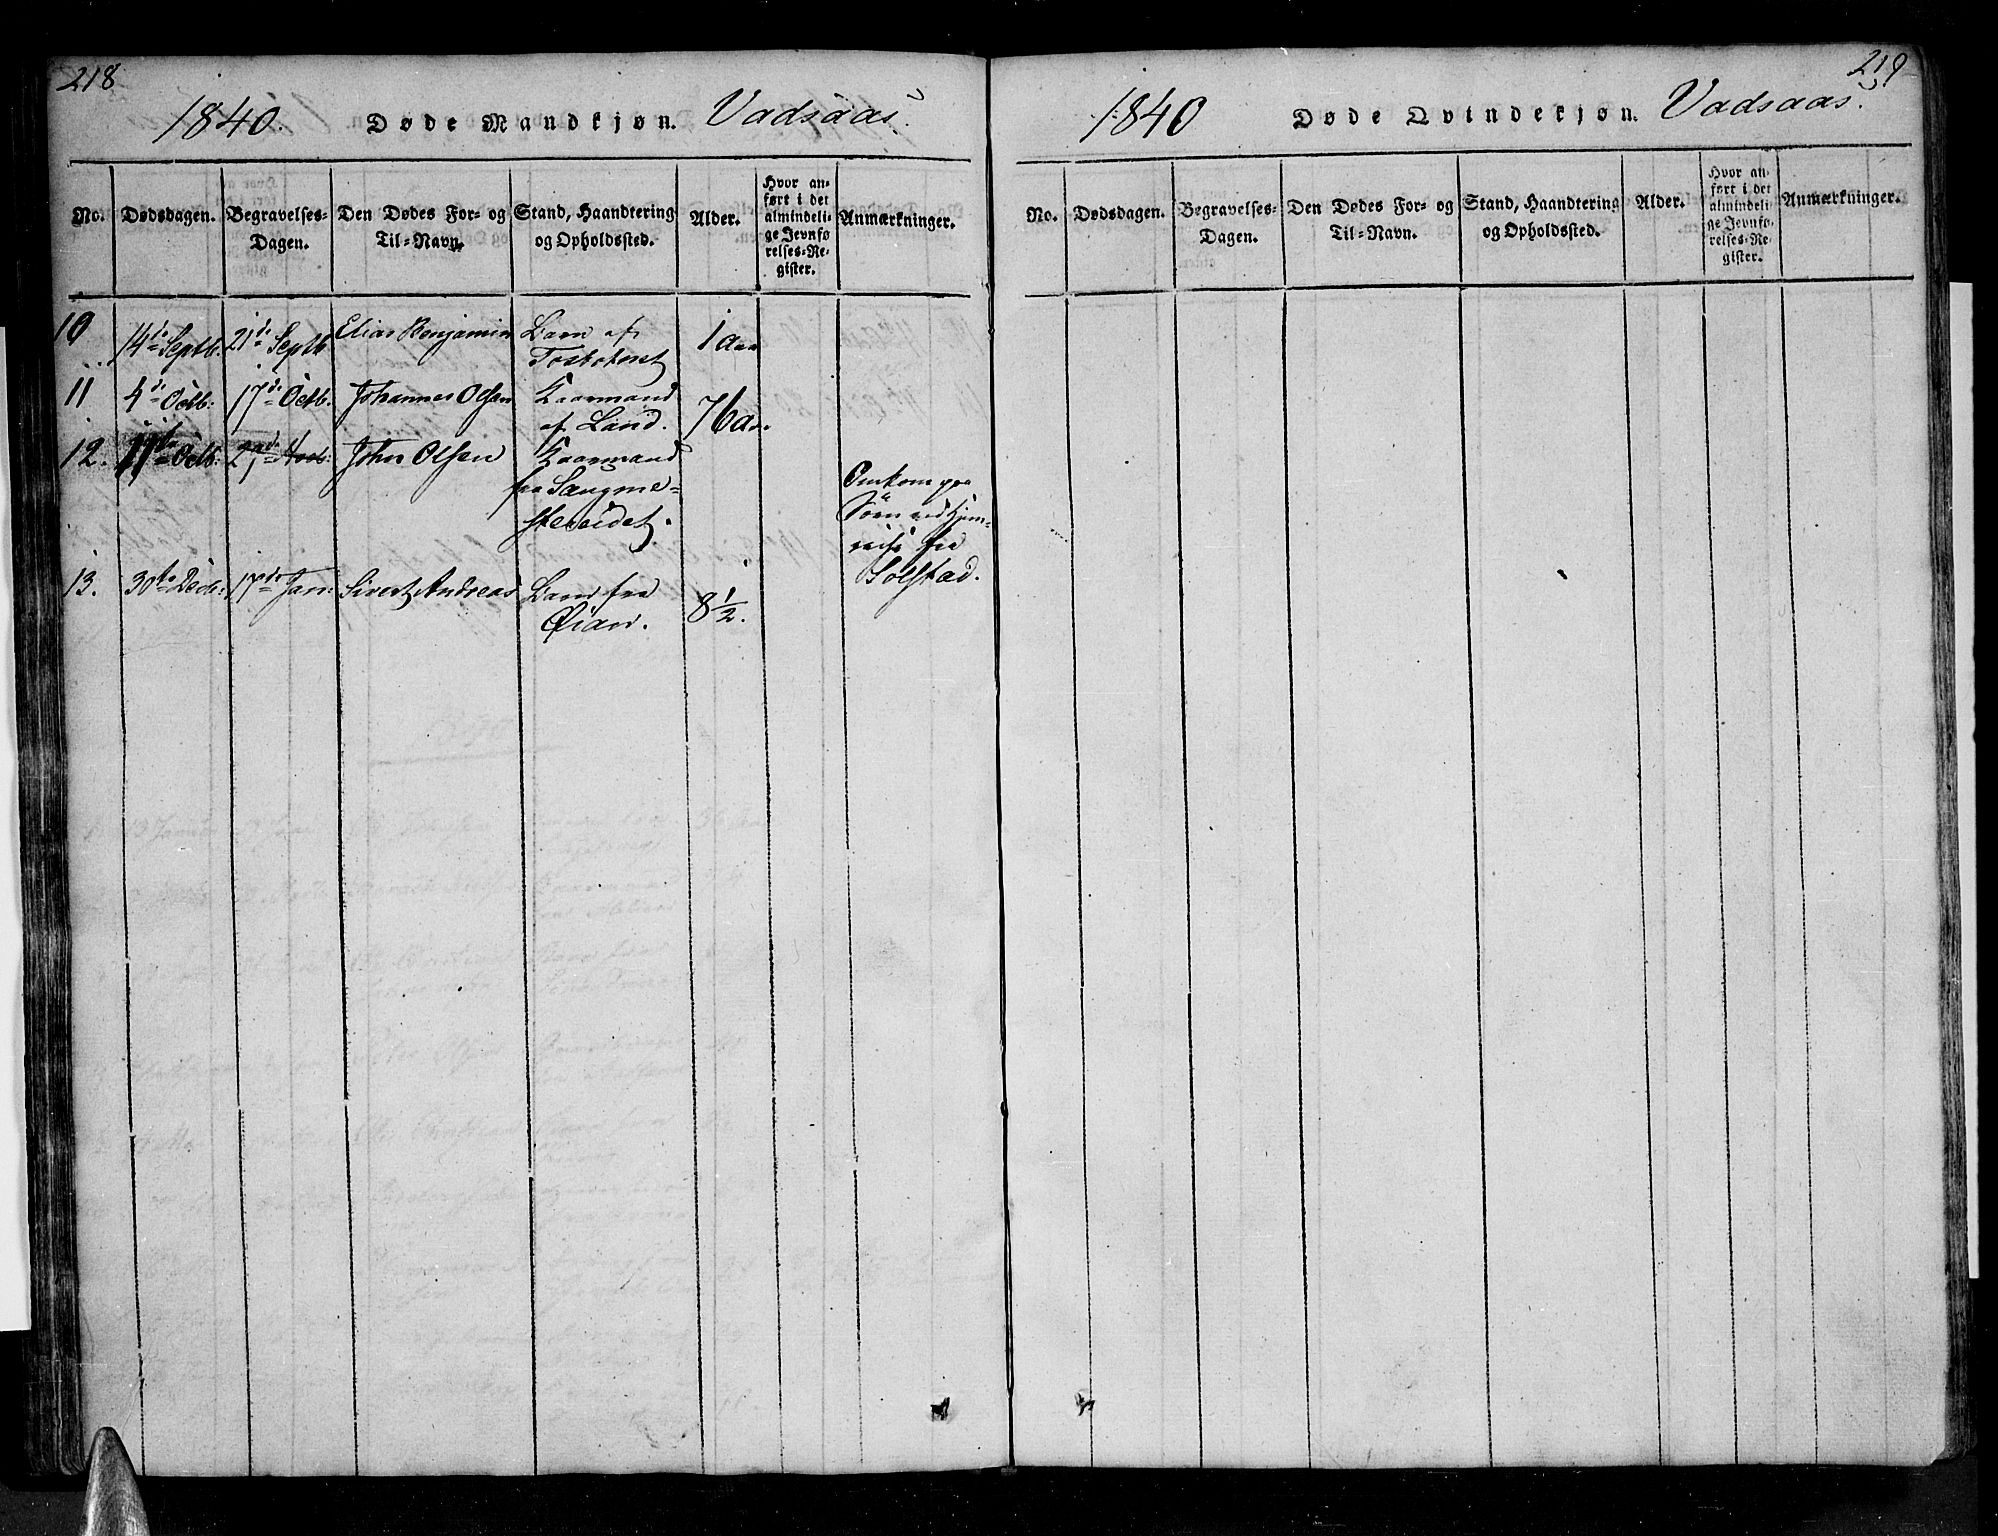 218
1840. Døde Mandkjøn. Vadsaas.
No. Dødsdagen. Begravelses-Dagen. Den Dødes For- og Til-Navn. Stand, Haandtering og Opholdssted. Alder. Hvor anført i det almindelige Jevnførelses-Register. Anmærkninger.
10 14de Septb. 21de Septb Elias Benjamin Barn af 1 Aar
11 4de Octb. 17de Octb. Johannes Olsen Kaarmand af Land. 76 Aar.
12. 11te Octb. John Olsen Kaarmand fra Sangmestereidet.
Omkom paa
Söen ved Hjem-
reise fra
Solstad.
13. 30te Decb. 17de Jan: Sivert Andreas Barn fra Øian. 8 1/2.
219
1840 Døde Qvindekjøn. Vadsaas.
No. Dødsdagen. Begravelses-Dagen. Den Dødes For- og Til-Navn. Stand, Haandtering og Opholdssted. Alder. Hvor anført i det almindelige Jevnførelses-Register. Anmærkninger.